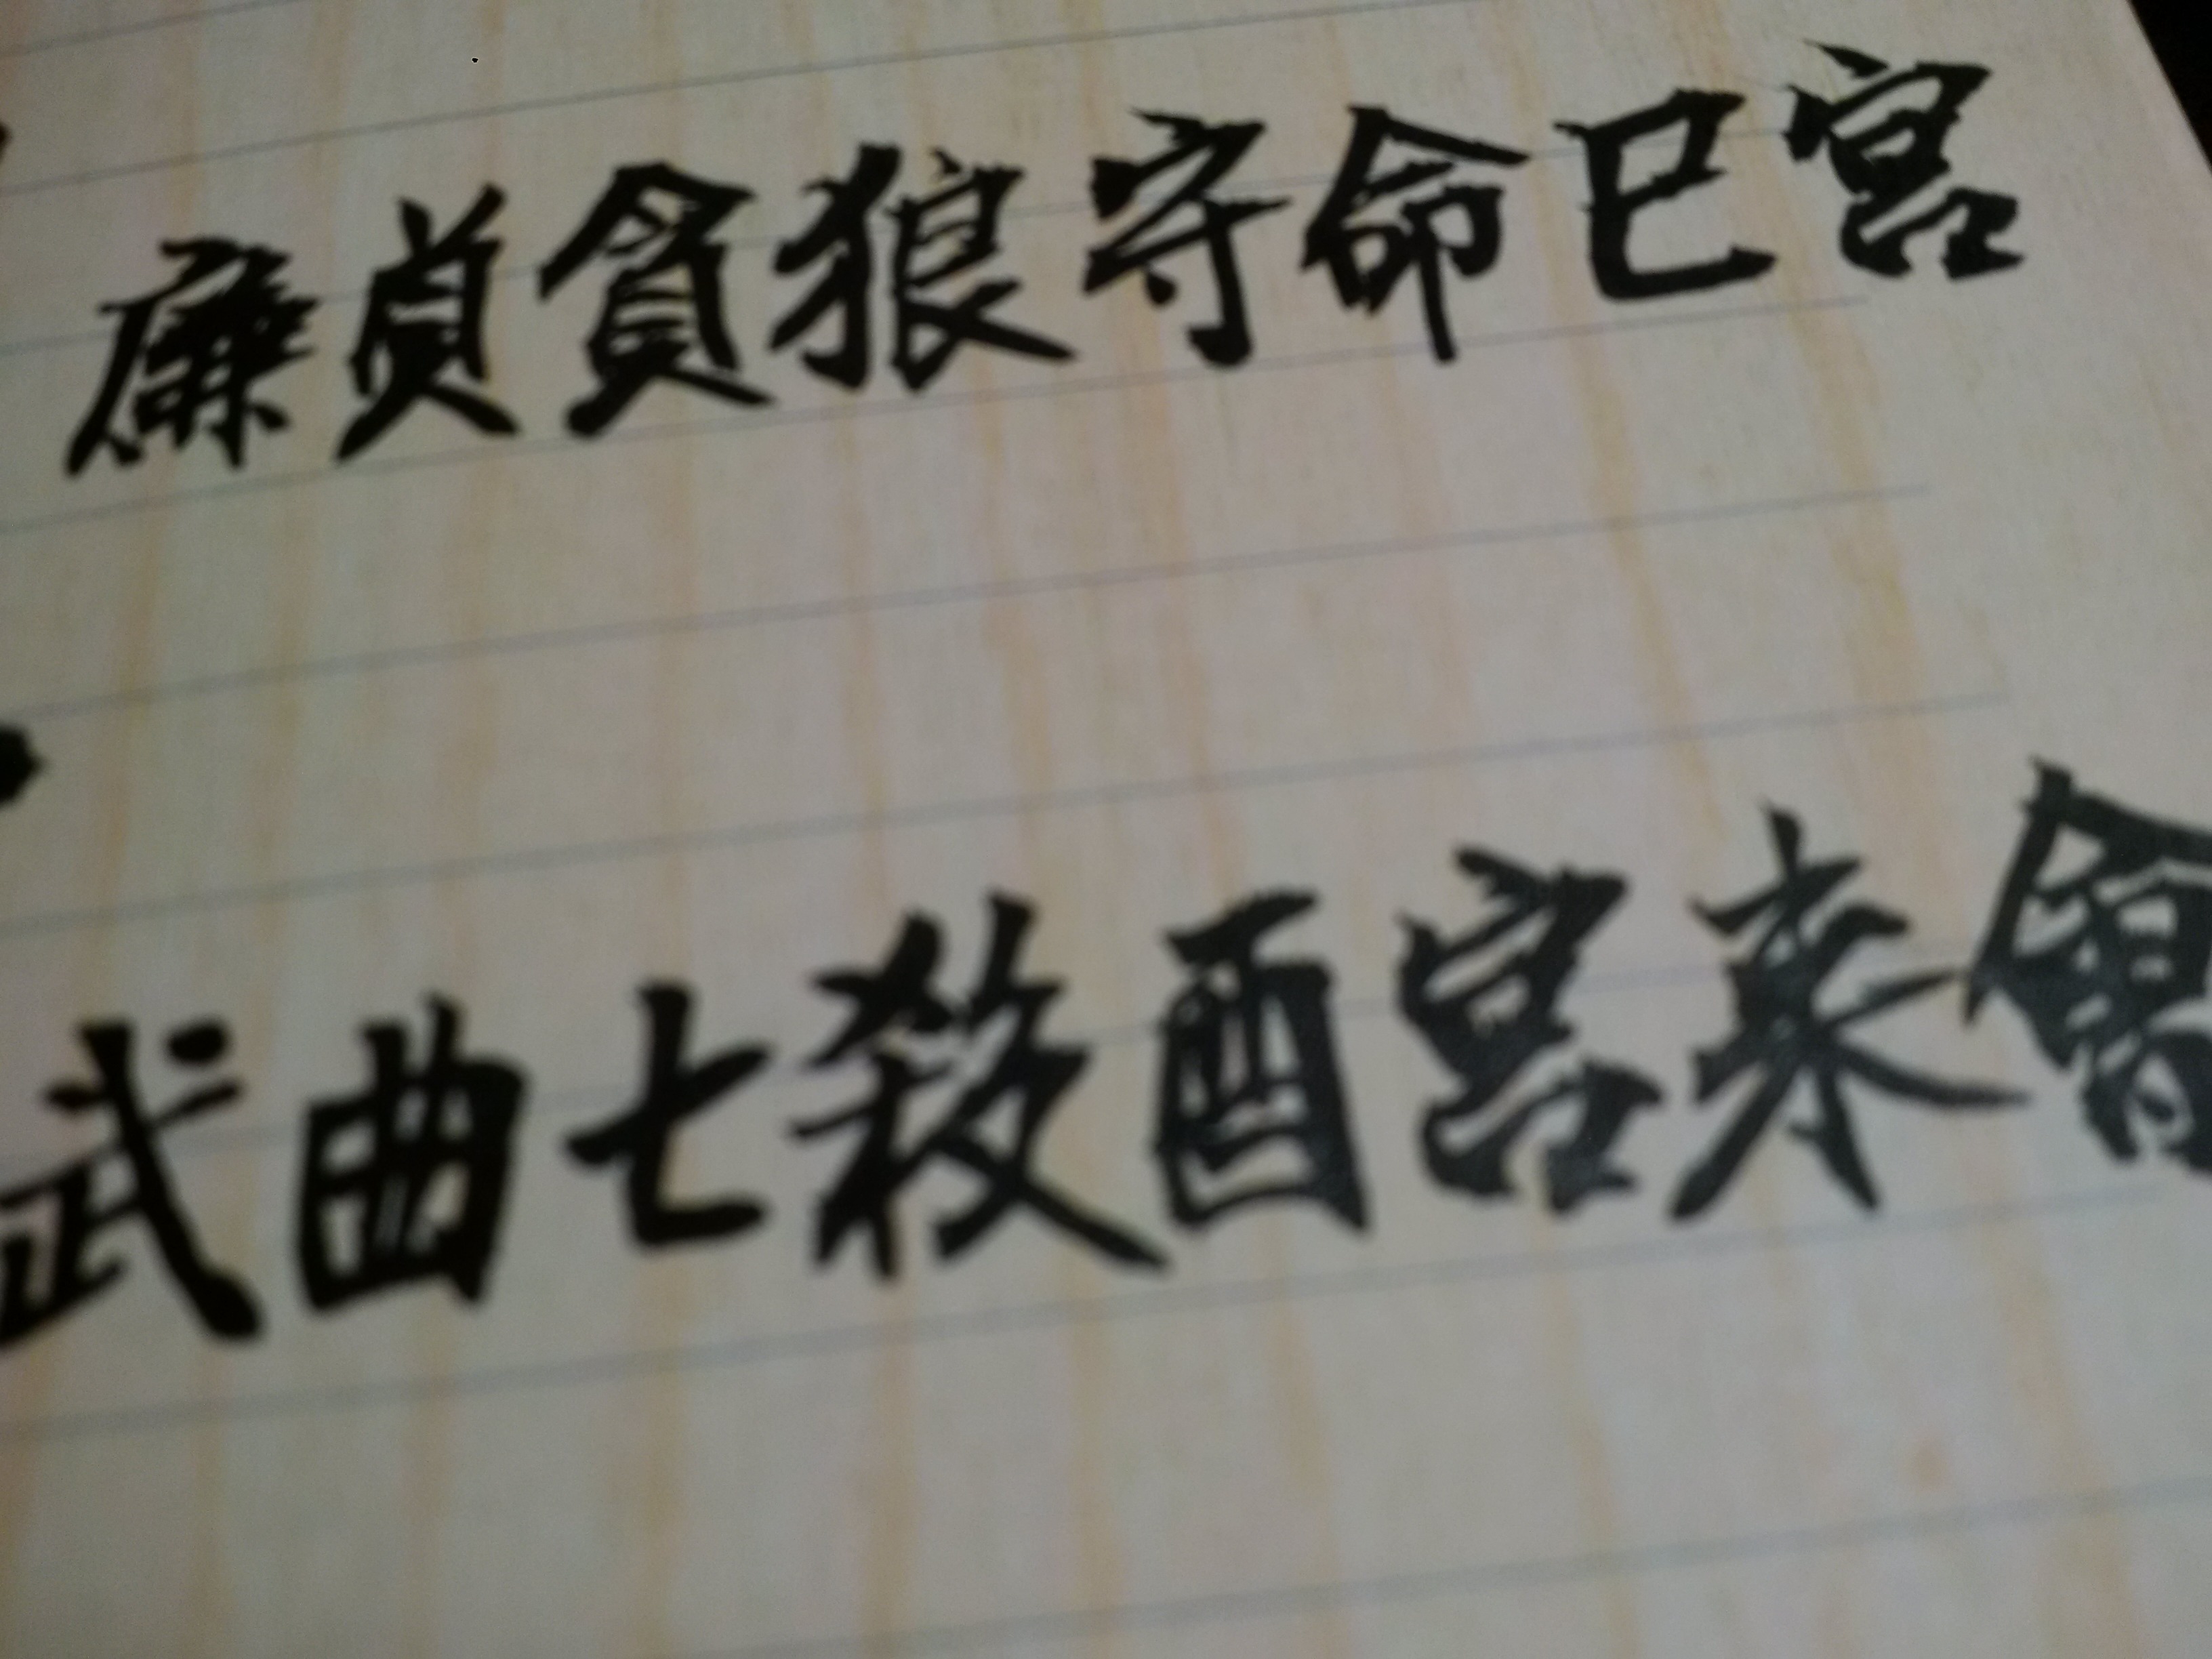 廉貞貪狼守命巳宮
武曲七殺酉宮來會